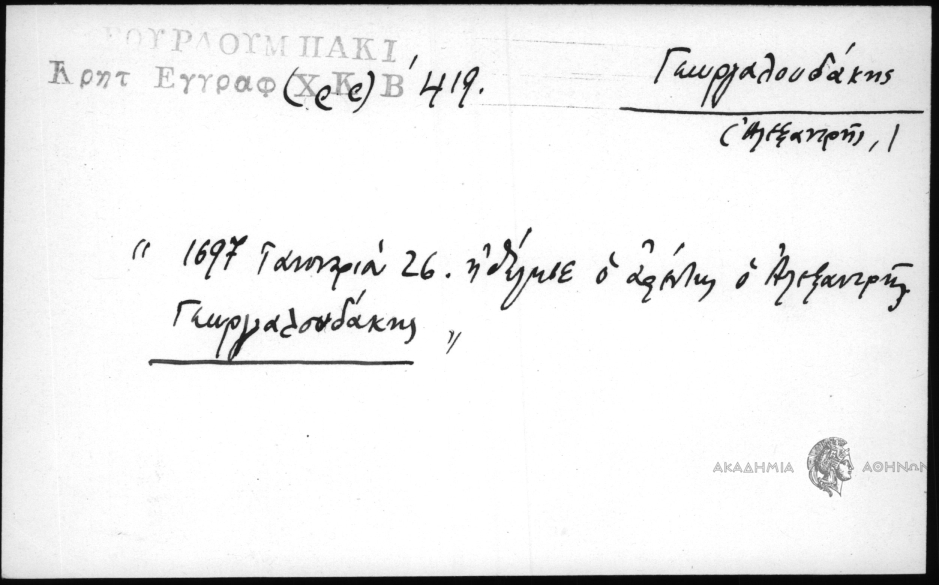 ΒΟΥΡΔΟΥΜΠΑΚΙ
Κρητ Εγγραφ (Χ Κ Β' 419.
Γεωργιαλουδάκης
(Ἀλεξανδρῆς, )
“ 1697 Γαννουαριὰ 26. ὁ ἀφέντης ὁ Ἀλεξανδρῆς
Γεωργιαλουδάκης „
ΑΚΑΔΗΜΙΑ ΑΘΗΝΩΝ